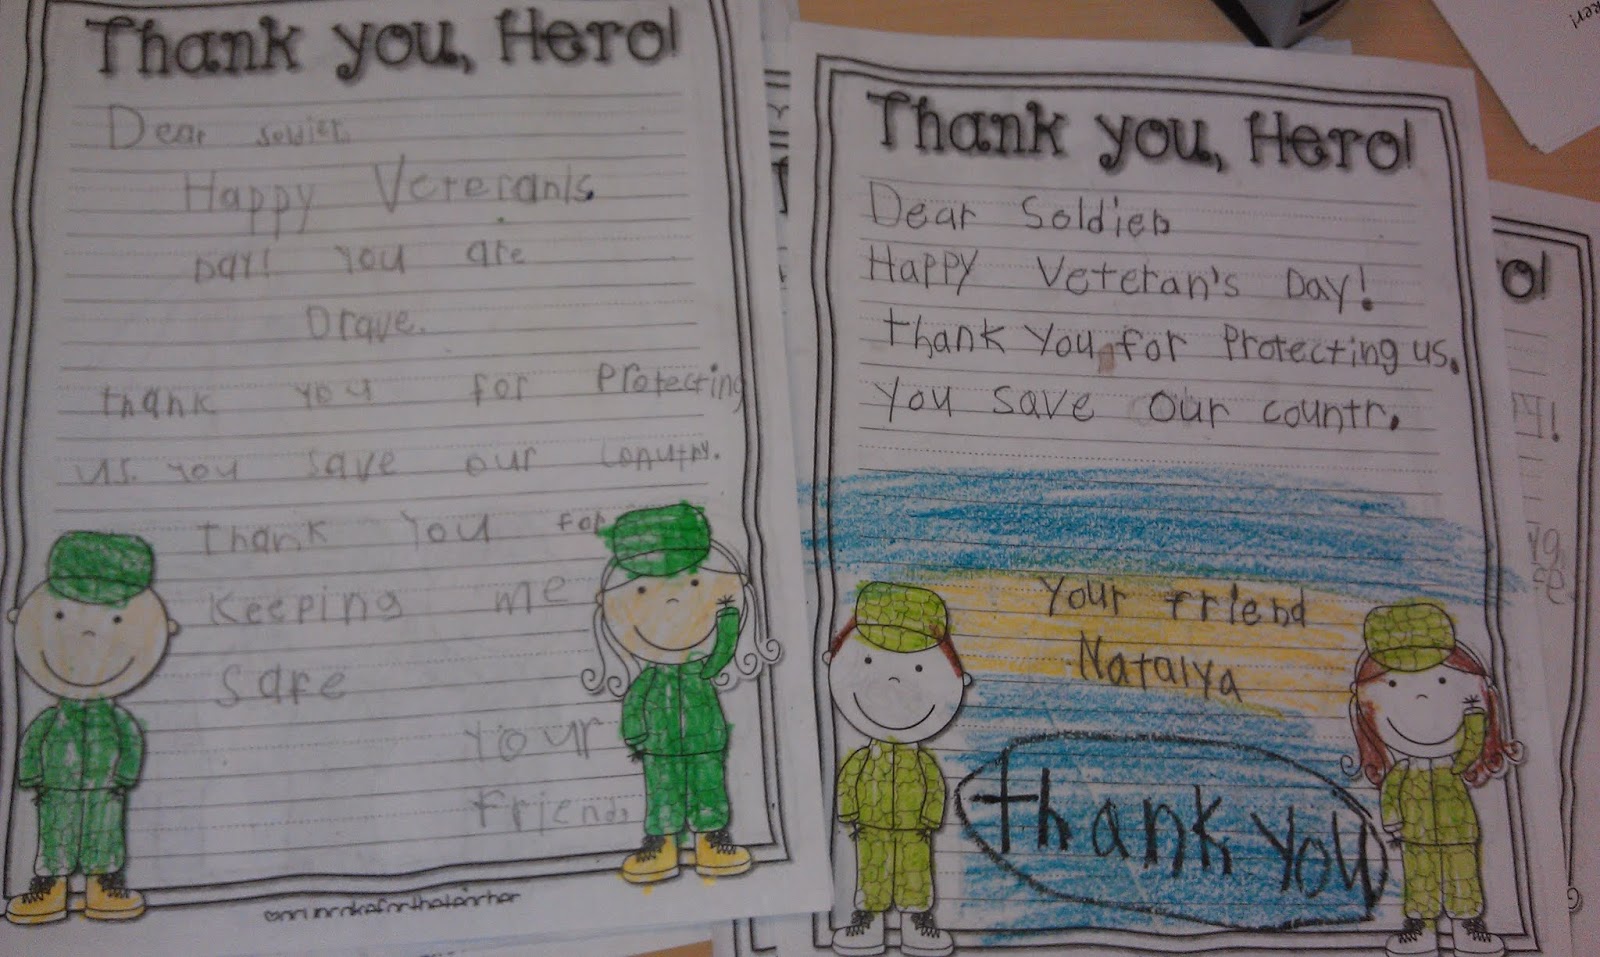 Thank you, Hero!
Dear soldier.
Happy Veteranls.
Day! You are
Drave.
thank you for Protecting
us. you save our
thank you for
Keeping me
safe
Your
Friend,
Thank you, Hero!
Dear Soldier
Happy Veteran's Day!
thank you for Protecting us.
You save our countr.
Your friend
Natalya
thank you
ro!